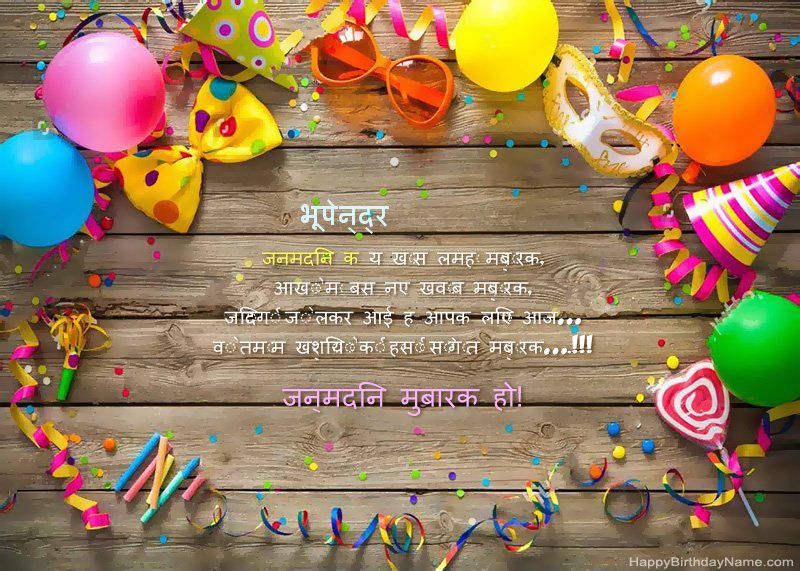 भूपेन्द्र
जन्मदिन के ये ख़ास लम्हें मुबारक,
आँखों में बसे नए ख्वाब मुबारक,
जिंदगी जो लेकर आई है आपके लिए आज...
वो तमाम खुशियों की हंसीं सौगात मुबारक...!!!
जन्मदिन मुबारक हो!
HappyBirthdayName.com